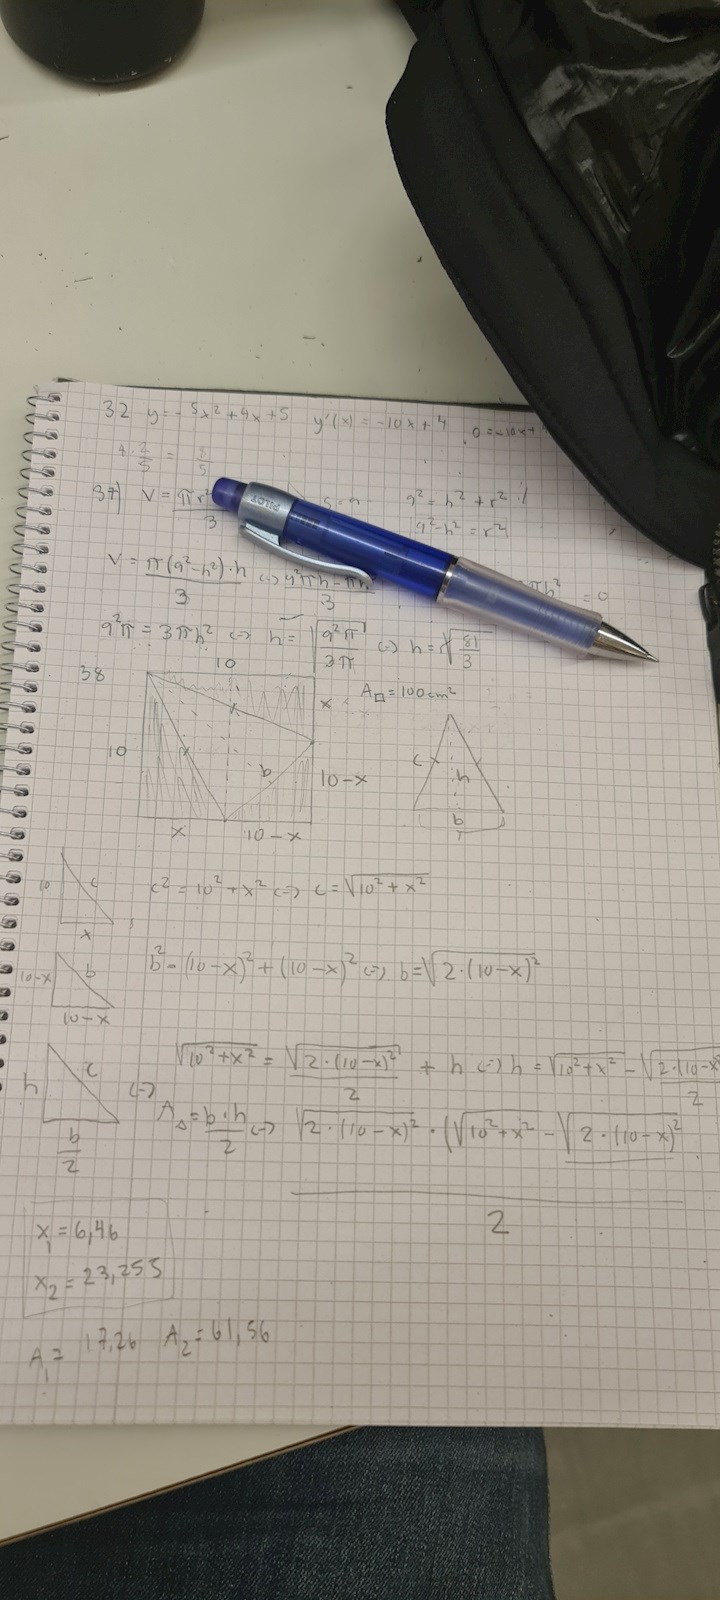 32 y=-5x²+4x+5 y'(x) = -10x+4 0=-10x+
4·2/5 = 8/5
37) V = πr² / 3 9² = h² + r²
PILOT
9²-h² = r²
V = π(9²-h²)·h / 3 <=> / 3 = 0
9²π = 3πh² <=> h = √(9²π / 3π) <=> h = √(81/3)
38 10
x A□ = 100cm²
10 x x a 10-x
x 10-x
c h
b
10 c
x
c² = 10² + x² <=> c = √(10² + x²)
10-x b
10-x
b² = (10-x)² + (10-x)² <=> b = √(2·(10-x)²)
h c
b/2
<=>
√(10²+x²) = √(2·(10-x)²) / 2 + h <=> h = √(10²+x²) - √(2·(10-x)²) / 2
A△ = b·h / 2 <=> √(2·(10-x)²)·(√(10²+x²) - √(2·(10-x)²)
2
x₁ = 6,46
x₂ = 23,255
A₁ = 17,26 A₂ = 61,56